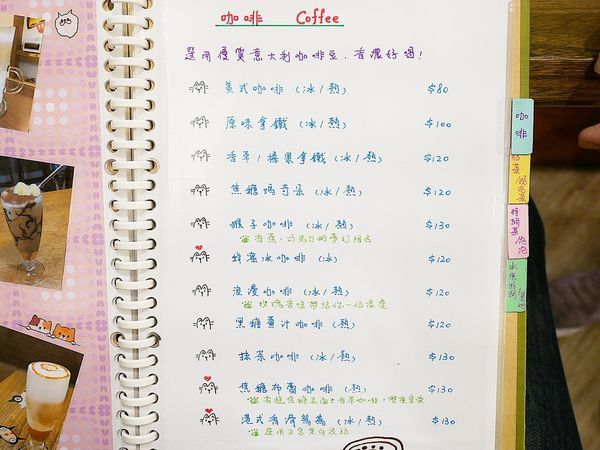 咖啡 Coffee
選用優質意大利咖啡豆，香濃好喝!
美式咖啡 (冰/熱) $80
原味拿鐵 (冰/熱) $100
香草/榛果拿鐵 (冰/熱) $120
焦糖瑪奇朵 (冰/熱) $120
猴子咖啡 (冰/熱) $130
香蕉、巧克力的夢幻組合
蜂蜜冰咖啡 (冰) $120
浪漫咖啡 (冰/熱) $120
玫瑰香味帶給你一份浪漫
黑糖薑汁咖啡 (熱) $120
抹茶咖啡 (冰/熱) $130
焦糖布蕾咖啡 (熱) $130
港式香滑鴛鴦 (冰/熱) $130
咖啡